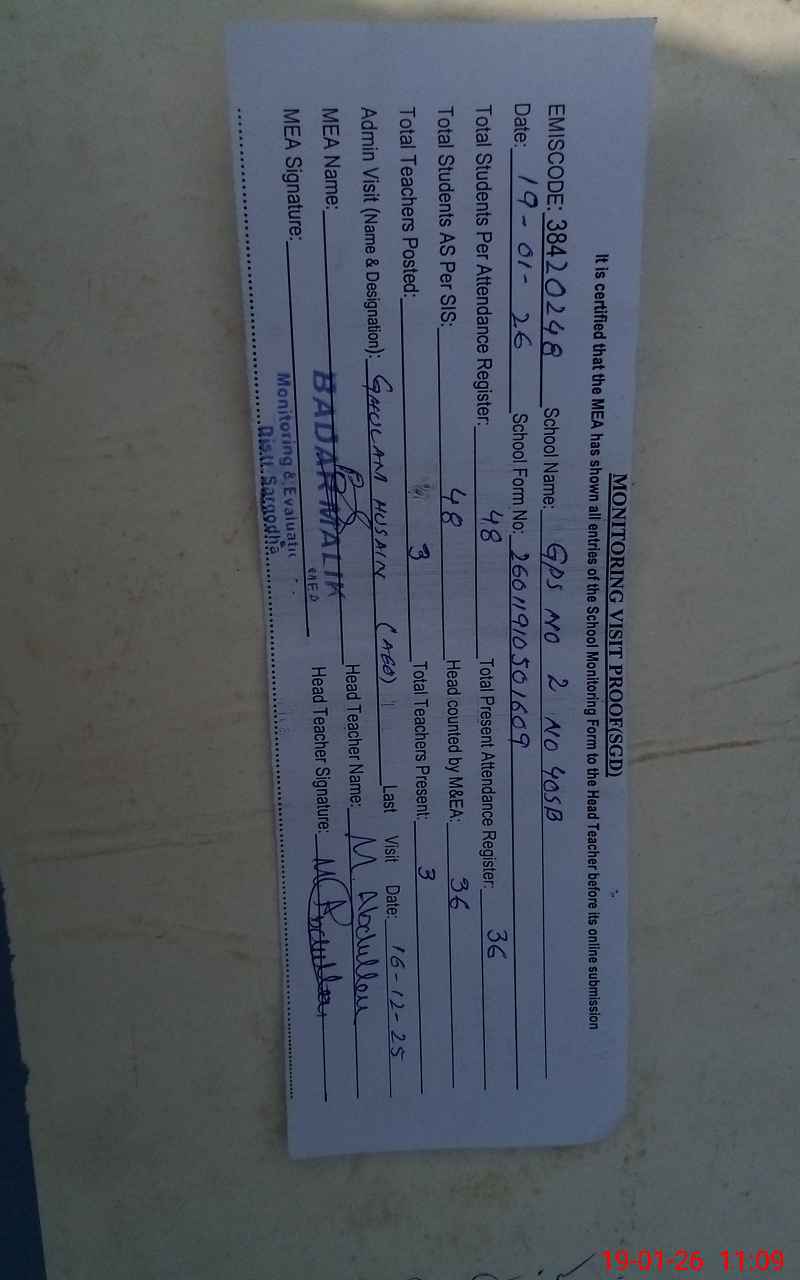 MONITORING VISIT PROOF(SGD)
It is certified that the MEA has shown all entries of the School Monitoring Form to the Head Teacher before its online submission
EMISCODE: 38420248 School Name: GPS NO 2 NO 40SB
Date: 19-01-26 School Form No: 26011910501609
Total Students Per Attendance Register: 48 Total Present Attendance Register: 36
Total Students AS Per SIS: 48 Head counted by M&EA: 36
Total Teachers Posted: 3 Total Teachers Present: 3
Admin Visit (Name & Designation): GHULAM HUSAIN (AEO) Last Visit Date: 16-12-25
MEA Name: BADAR MALIK Head Teacher Name: M. Abdullah
MEA Signature: Monitoring & Evaluati Head Teacher Signature: M Abdullah
Distt. Sargodha
19-01-26 11:09